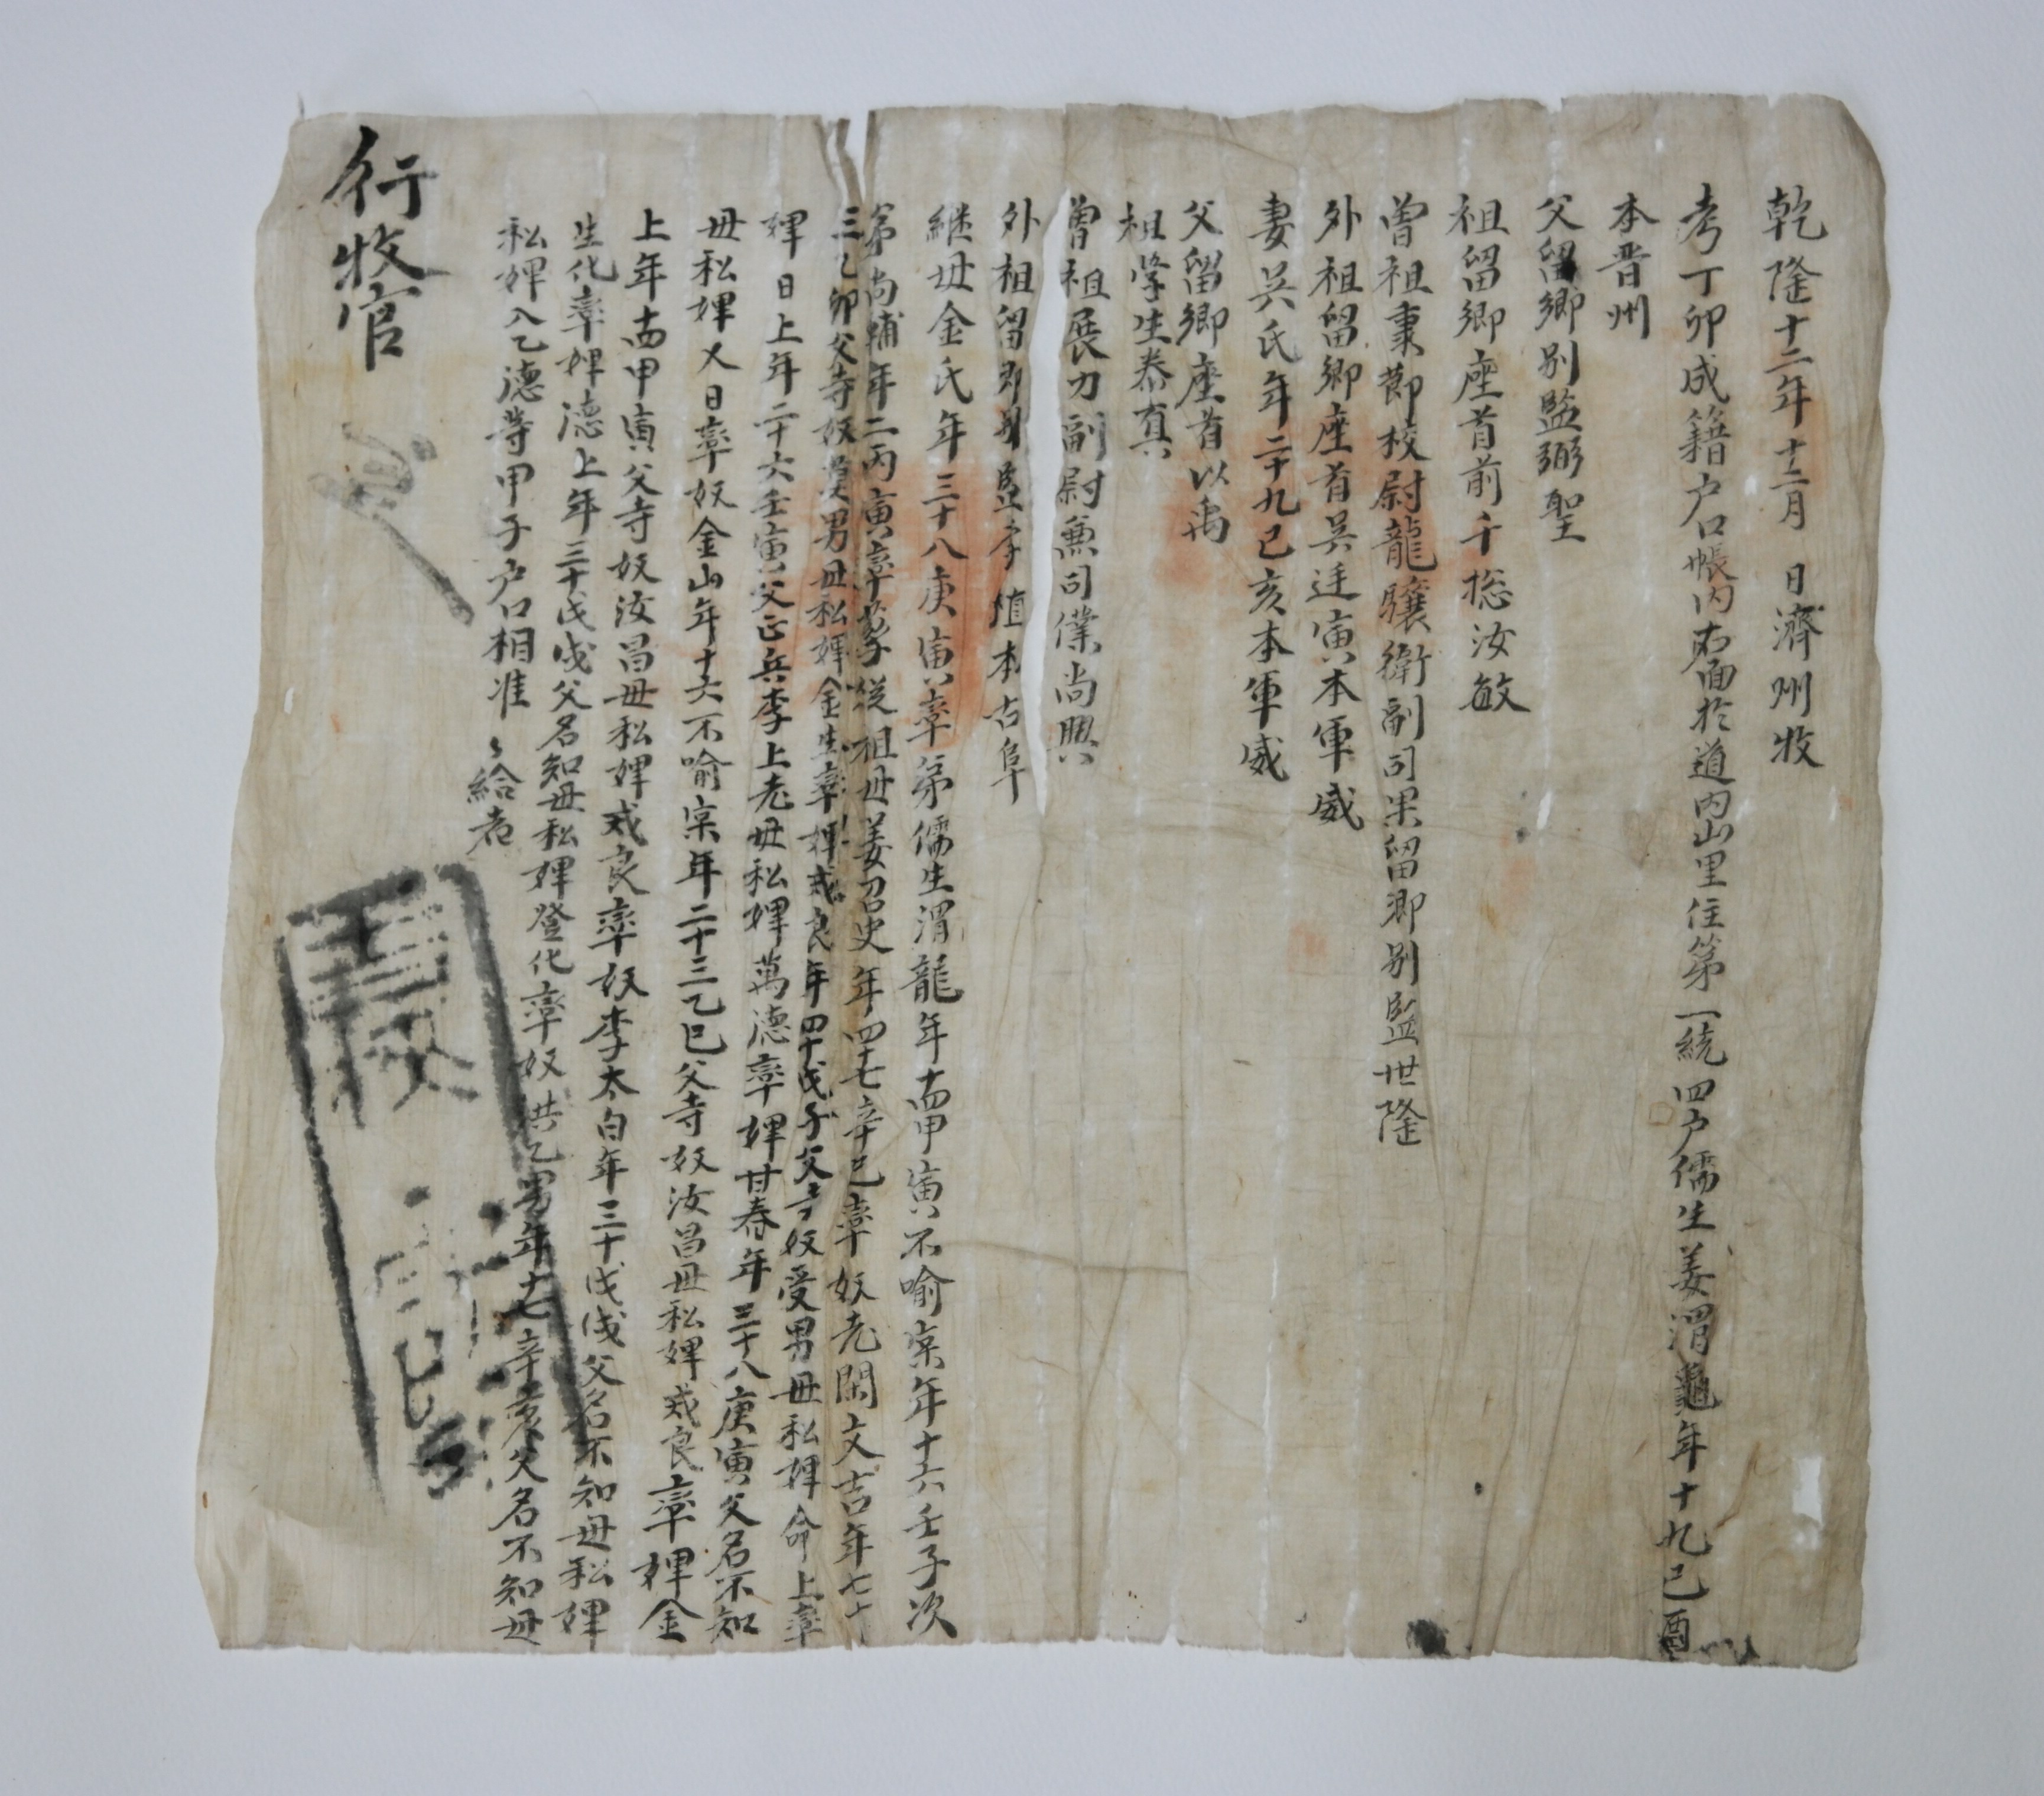 乾隆十二年十二月 日濟州牧
考丁卯成籍户口帳內右面於道內山里住第一統四户儒生姜渭龜年十九己酉
本晋州
父留鄉別監弼聖
祖留鄉座首前千摠汝敏
曾祖秉節校尉龍驤衛副司果留鄉別監世隆
外祖留鄉座首吳廷寅本軍威
妻吳氏年二十九己亥本軍威
父留鄉座首以禹
祖學生泰真
曾祖展力副尉兼司僕尚興
外祖留鄉別監李植本古阜
継母金氏年三十八庚寅率弟儒生渭龍年十四甲寅不喻宗年十六壬子次
弟尚輔年二丙寅率從祖母姜召史年四十七辛巳率奴老閑文吉年七十
三乙卯父寺奴愛男母私婢金生率婢戒良年四十戊子父寺奴受男母私婢命上率
婢日上年二十六壬寅父正兵李上老母私婢萬德率婢甘春年三十八庚寅父名不知
母私婢又日率奴金山年十六不喻宗年二十三乙巳父寺奴汝昌母私婢戒良率婢金
上年十四甲寅父寺奴汝昌母私婢戒良率奴李太白年三十戊戌父名不知母私婢
生化率婢德上年三十戊戌父名知母私婢登化率奴洪乙男年十七辛亥父名不知母
私婢八乙德等甲子户口相准々給者
行牧官